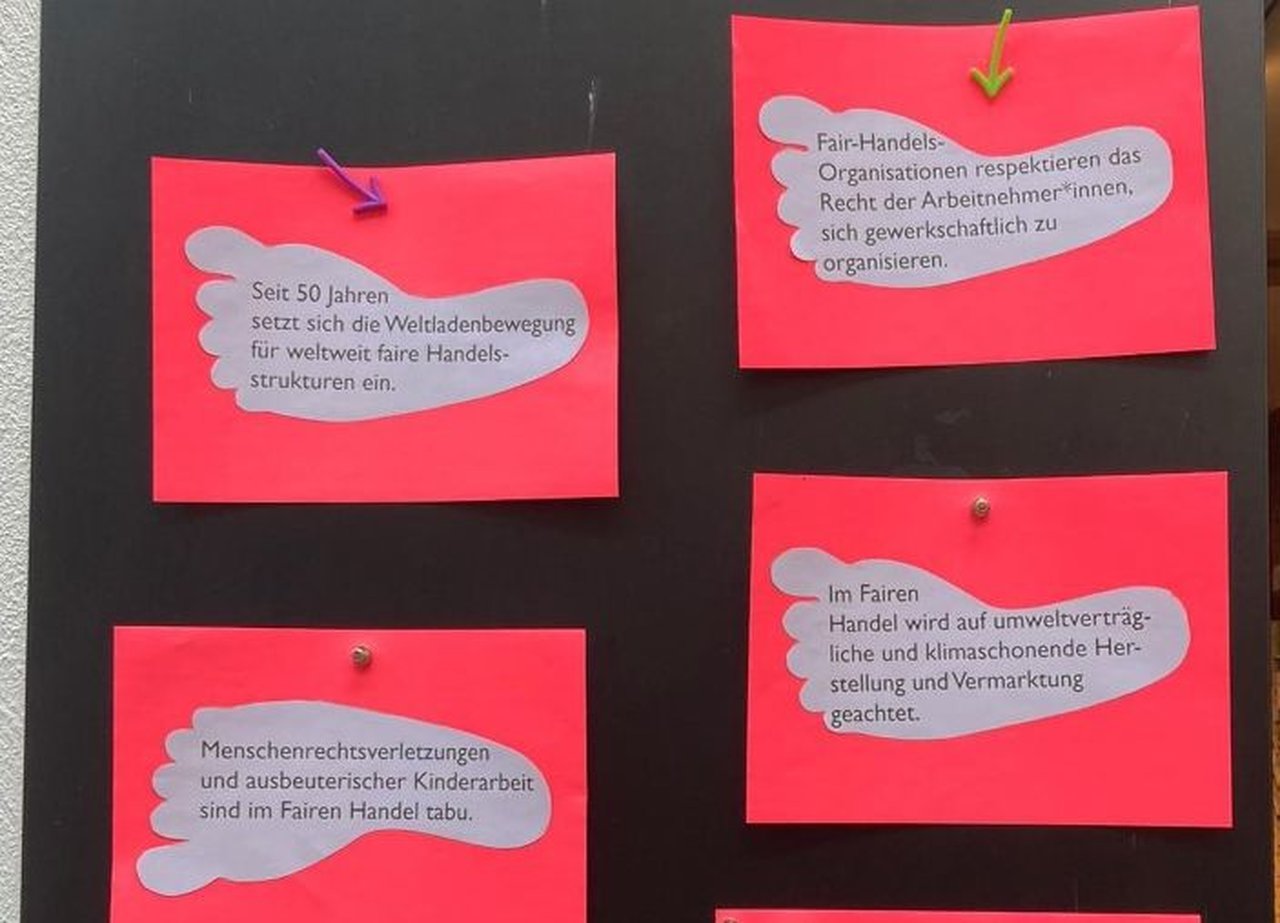 Seit 50 Jahren
setzt sich die Weltladenbewegung
für weltweit faire Handels-
strukturen ein.
Fair-Handels-
Organisationen respektieren das
Recht der Arbeitnehmer*innen,
sich gewerkschaftlich zu
organisieren.
Menschenrechtsverletzungen
und ausbeuterischer Kinderarbeit
sind im Fairen Handel tabu.
Im Fairen
Handel wird auf umweltverträg-
liche und klimaschonende Her-
stellung und Vermarktung
geachtet.